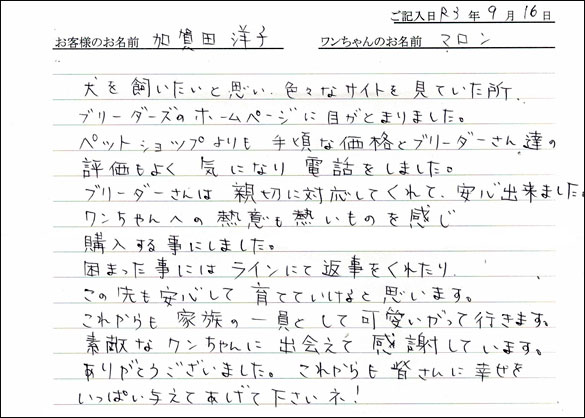 ご記入日 R3 年 9 月 16 日
お客様のお名前 加賀田 洋子 ワンちゃんのお名前 マロン
犬を飼いたいと思い、色々なサイトを見ていた所、
ブリーダーズのホームページに目がとまりました。
ペットショップよりも 手頃な価格とブリーダーさん達の
評価もよく 気になり 電話をしました。
ブリーダーさんは 親切に対応してくれて、安心出来ました。
ワンちゃんへの 熱意も熱いものを感じ
購入する事にしました。
困まった事には ラインにて返事をくれたり、
この先も安心して 育てていけると思います。
これからも 家族の一員として可愛いがって行きます。
素敵なワンちゃんに 出会えて 感謝しています。
ありがとうございました。これからも 皆さんに幸せを
いっぱい与えてあげて下さいネ!